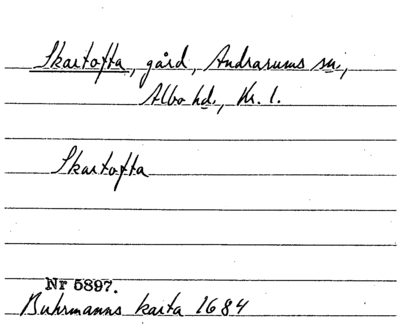 Skartofta, gård, Andrarums sn.,
Albo hd., Kr. l.
Skartofta
Nr 5897.
Buhrmanns karta 1684